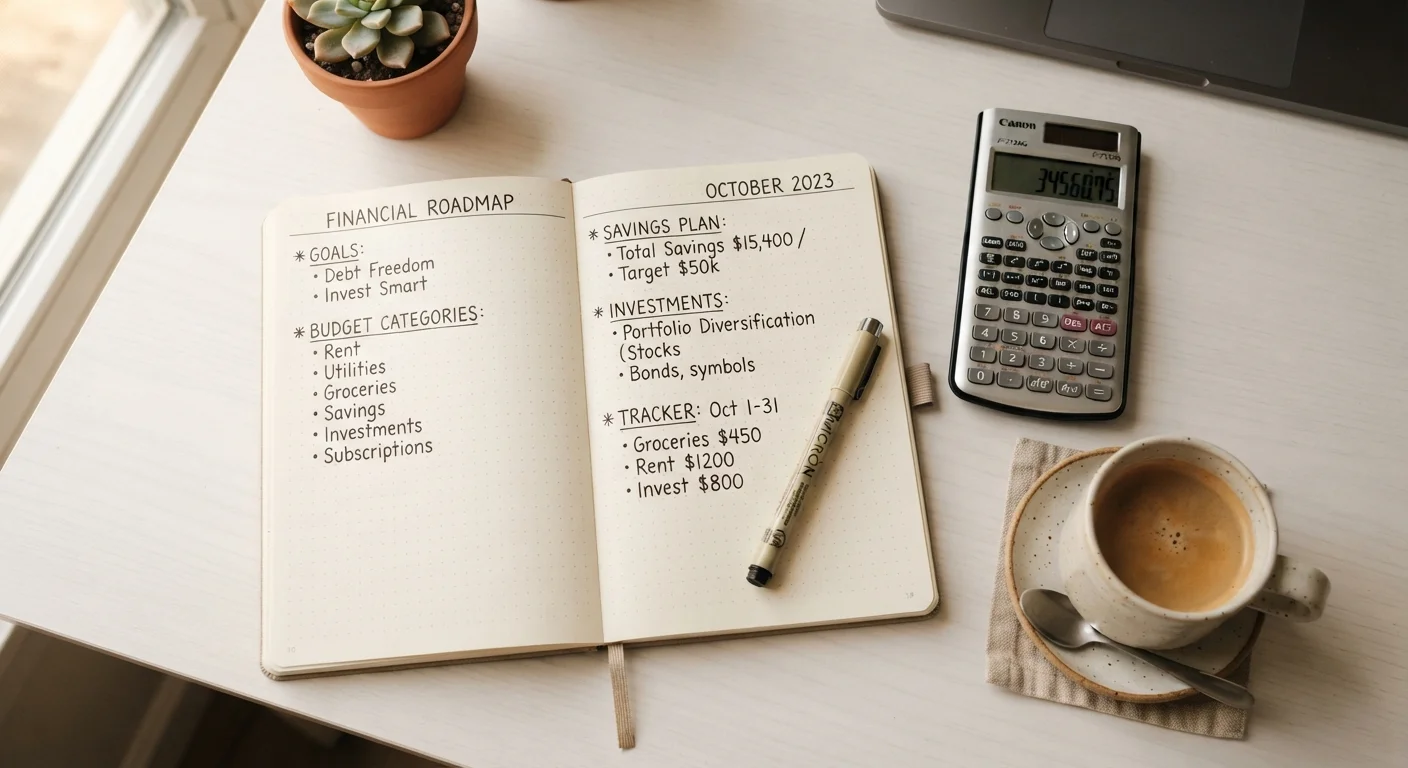 FINANCIAL ROADMAP
* GOALS:
• Debt Freedom
• Invest Smart
* BUDGET CATEGORIES:
• Rent
• Utilities
• Groceries
• Savings
• Investments
• Subscriptions
OCTOBER 2023
* SAVINGS PLAN:
• Total Savings $15,400 /
• Target $50k
* INVESTMENTS:
• Portfolio Diversification
(Stocks
• Bonds, symbols
* TRACKER: Oct 1-31
• Groceries $450
• Rent $1200
• Invest $800
18
MICRON
Canon
7 8 9
4 5 6 × ÷
1 2 3 + −
0 . =